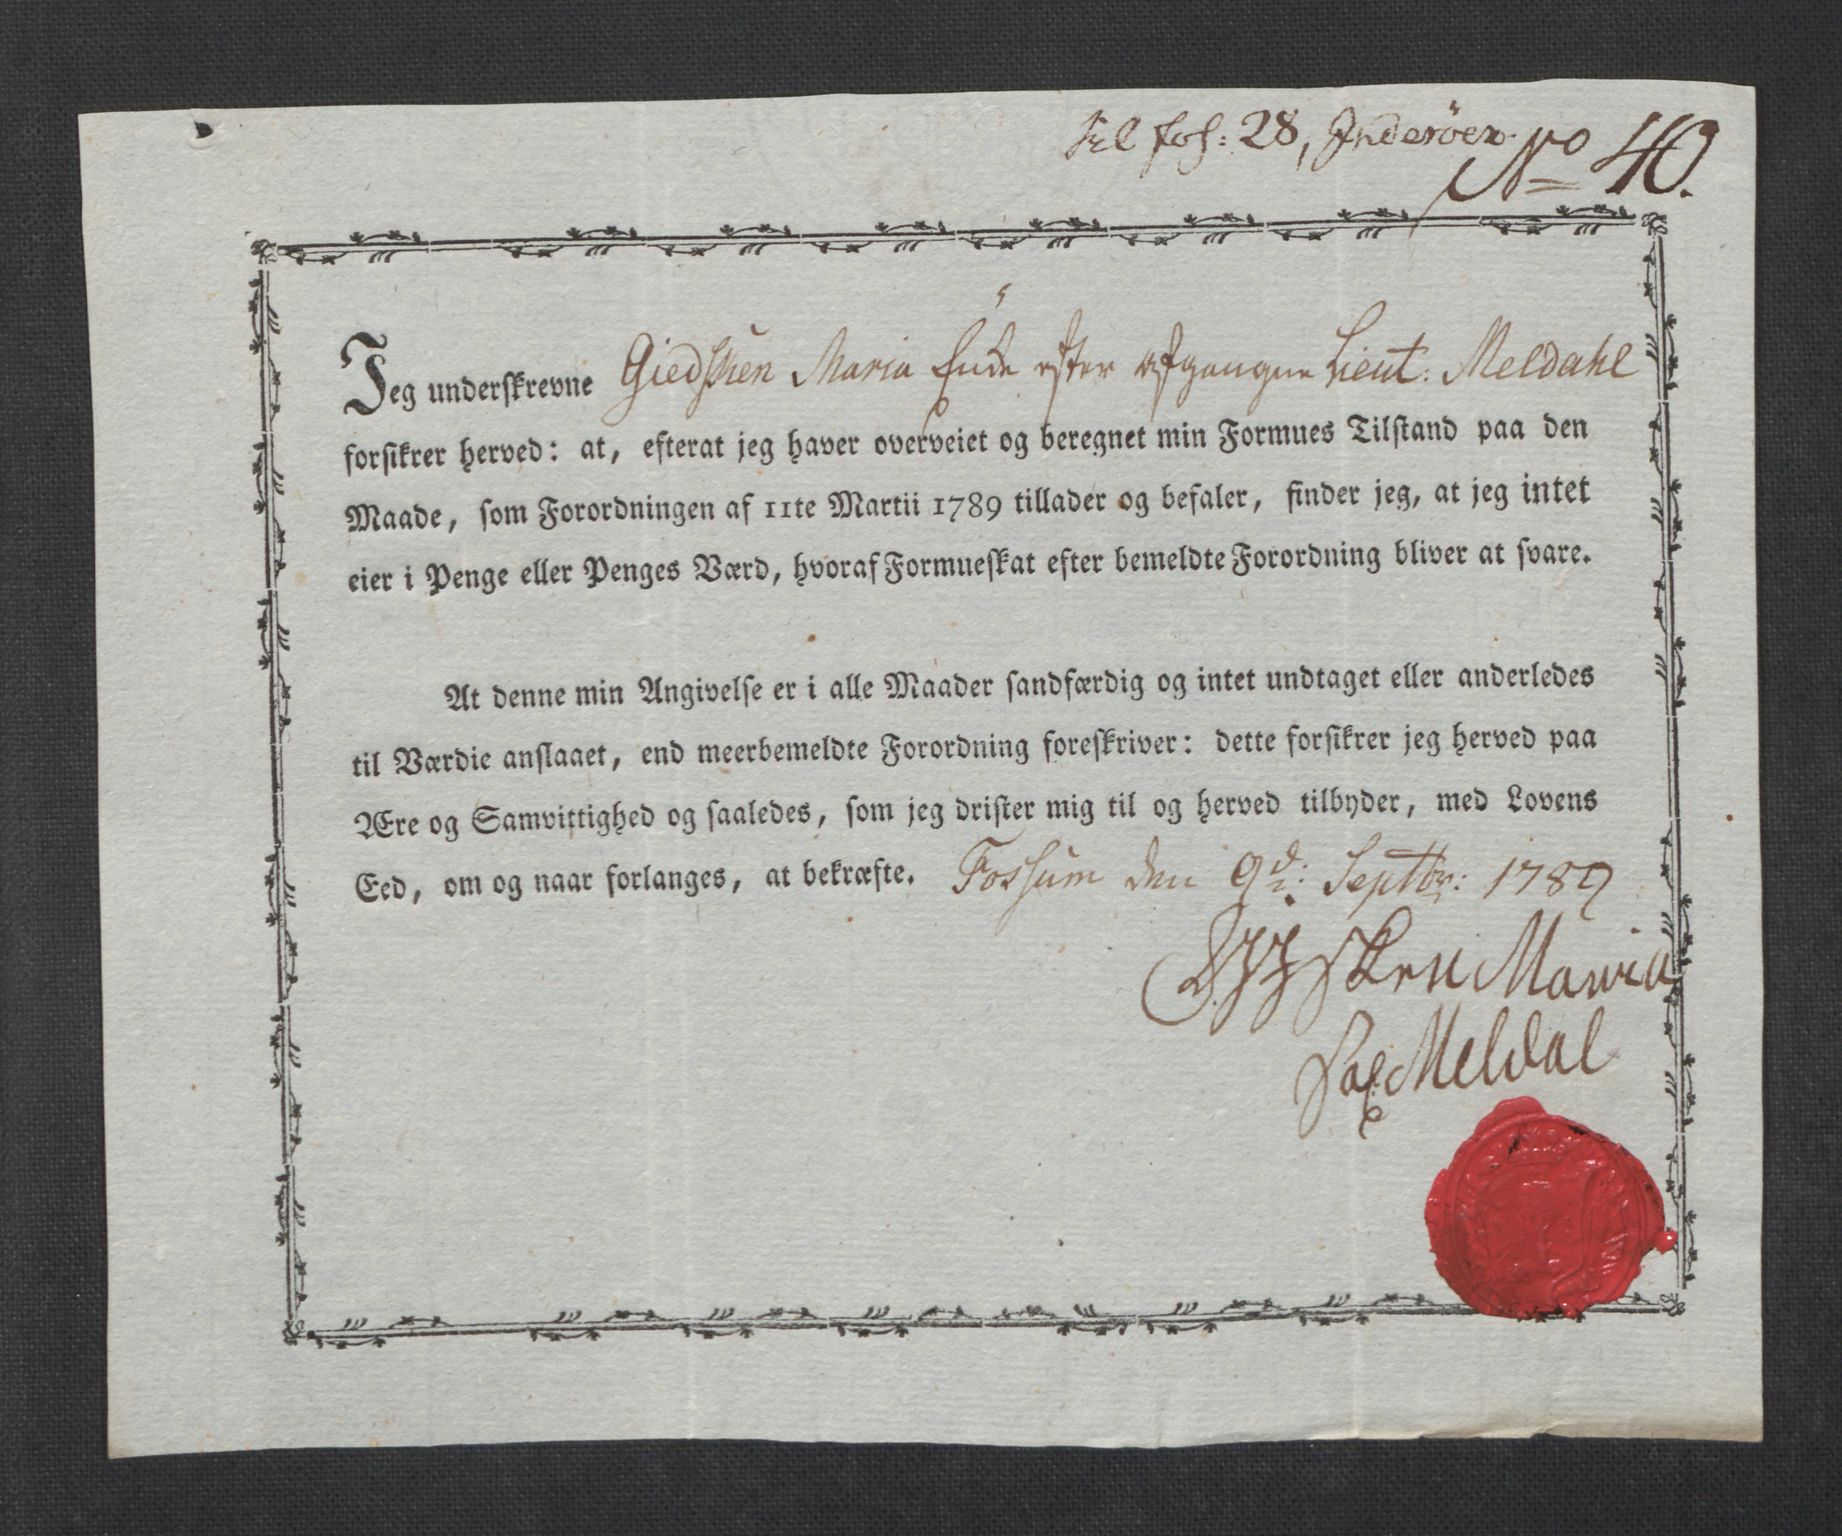 til fol: 28, Inderöen
No 40.
Jeg underskrevne Giedsken Maria Enke efter afgangne Lieut: Meldahl
forsikrer herved: at, efterat jeg haver overveiet og beregnet min Formues Tilstand paa den
Maade, som Forordningen af 11te Martii 1789 tillader og befaler, finder jeg, at jeg intet
eier i Penge eller Penges Værd, hvoraf Formueskat efter bemeldte Forordning bliver at svare.
At denne min Angivelse er i alle Maader sandfærdig og intet undtaget eller anderledes
til Værdie anslaaet, end meerbemeldte Forordning foreskriver: dette forsikrer jeg herved paa
Ære og Samvittighed og saaledes, som jeg drister mig til og herved tilbyder, med Lovens
Eed, om og naar forlanges, at bekræfte. Fossum den 9d: Septbr: 1789
Maria
Sal: Meldal